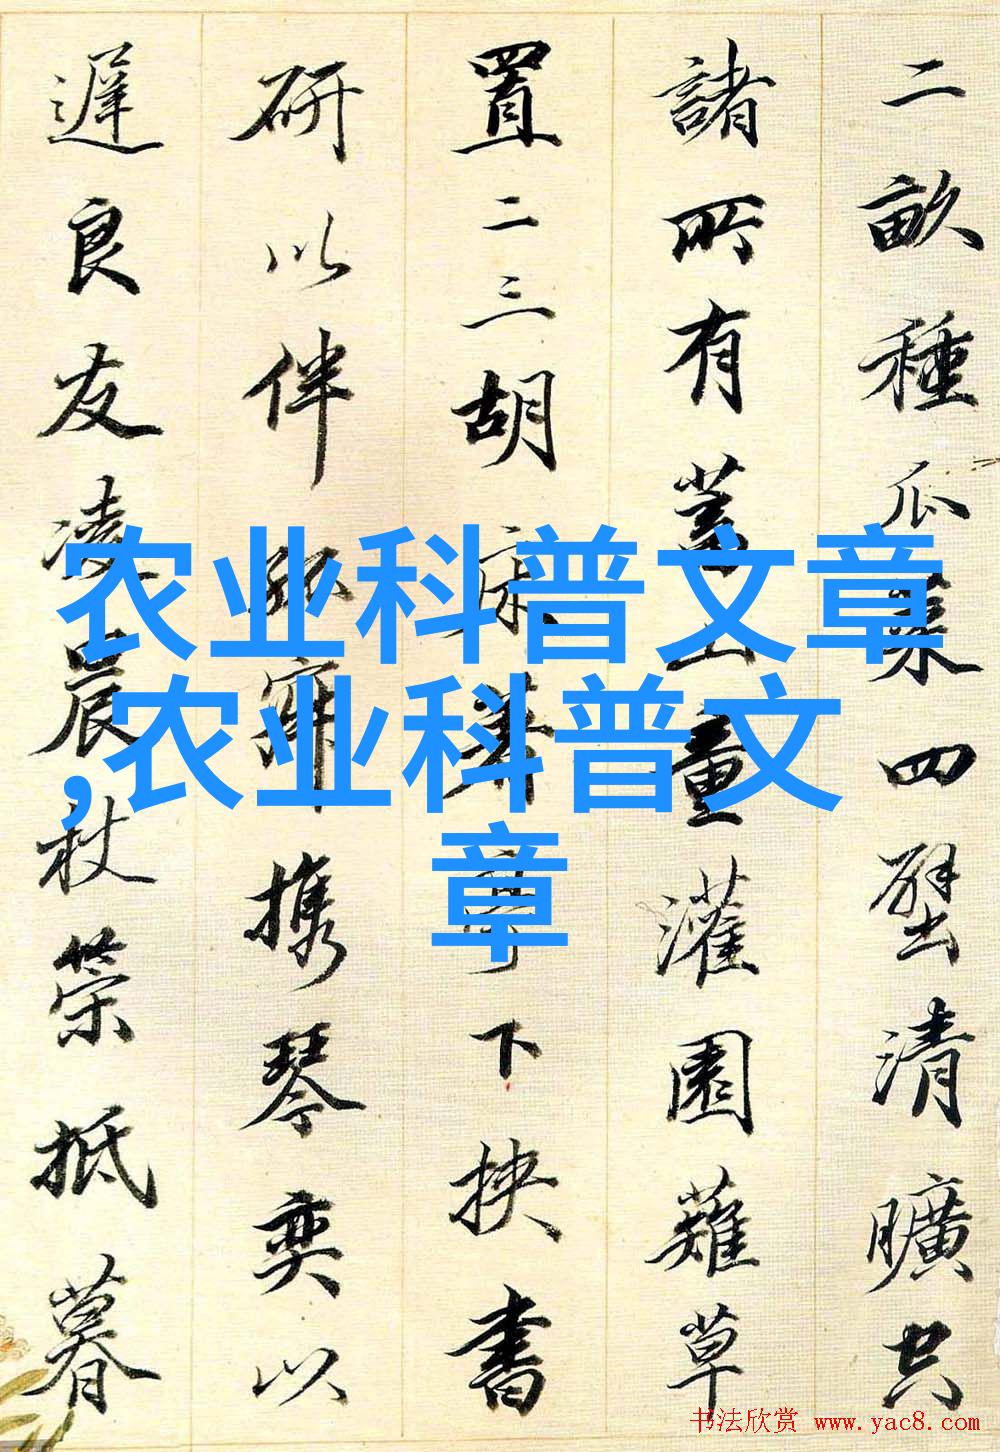 二畝種瓜菜四壁清曠共
諸所有蓋山童灌園薙草
置二三胡床著亭下挾書
研以伴孤寂攜琴奕以
遲良友凌晨杖策抵暮
农业科普文章
,农业科普文
章
书法欣赏 www.yac8.com